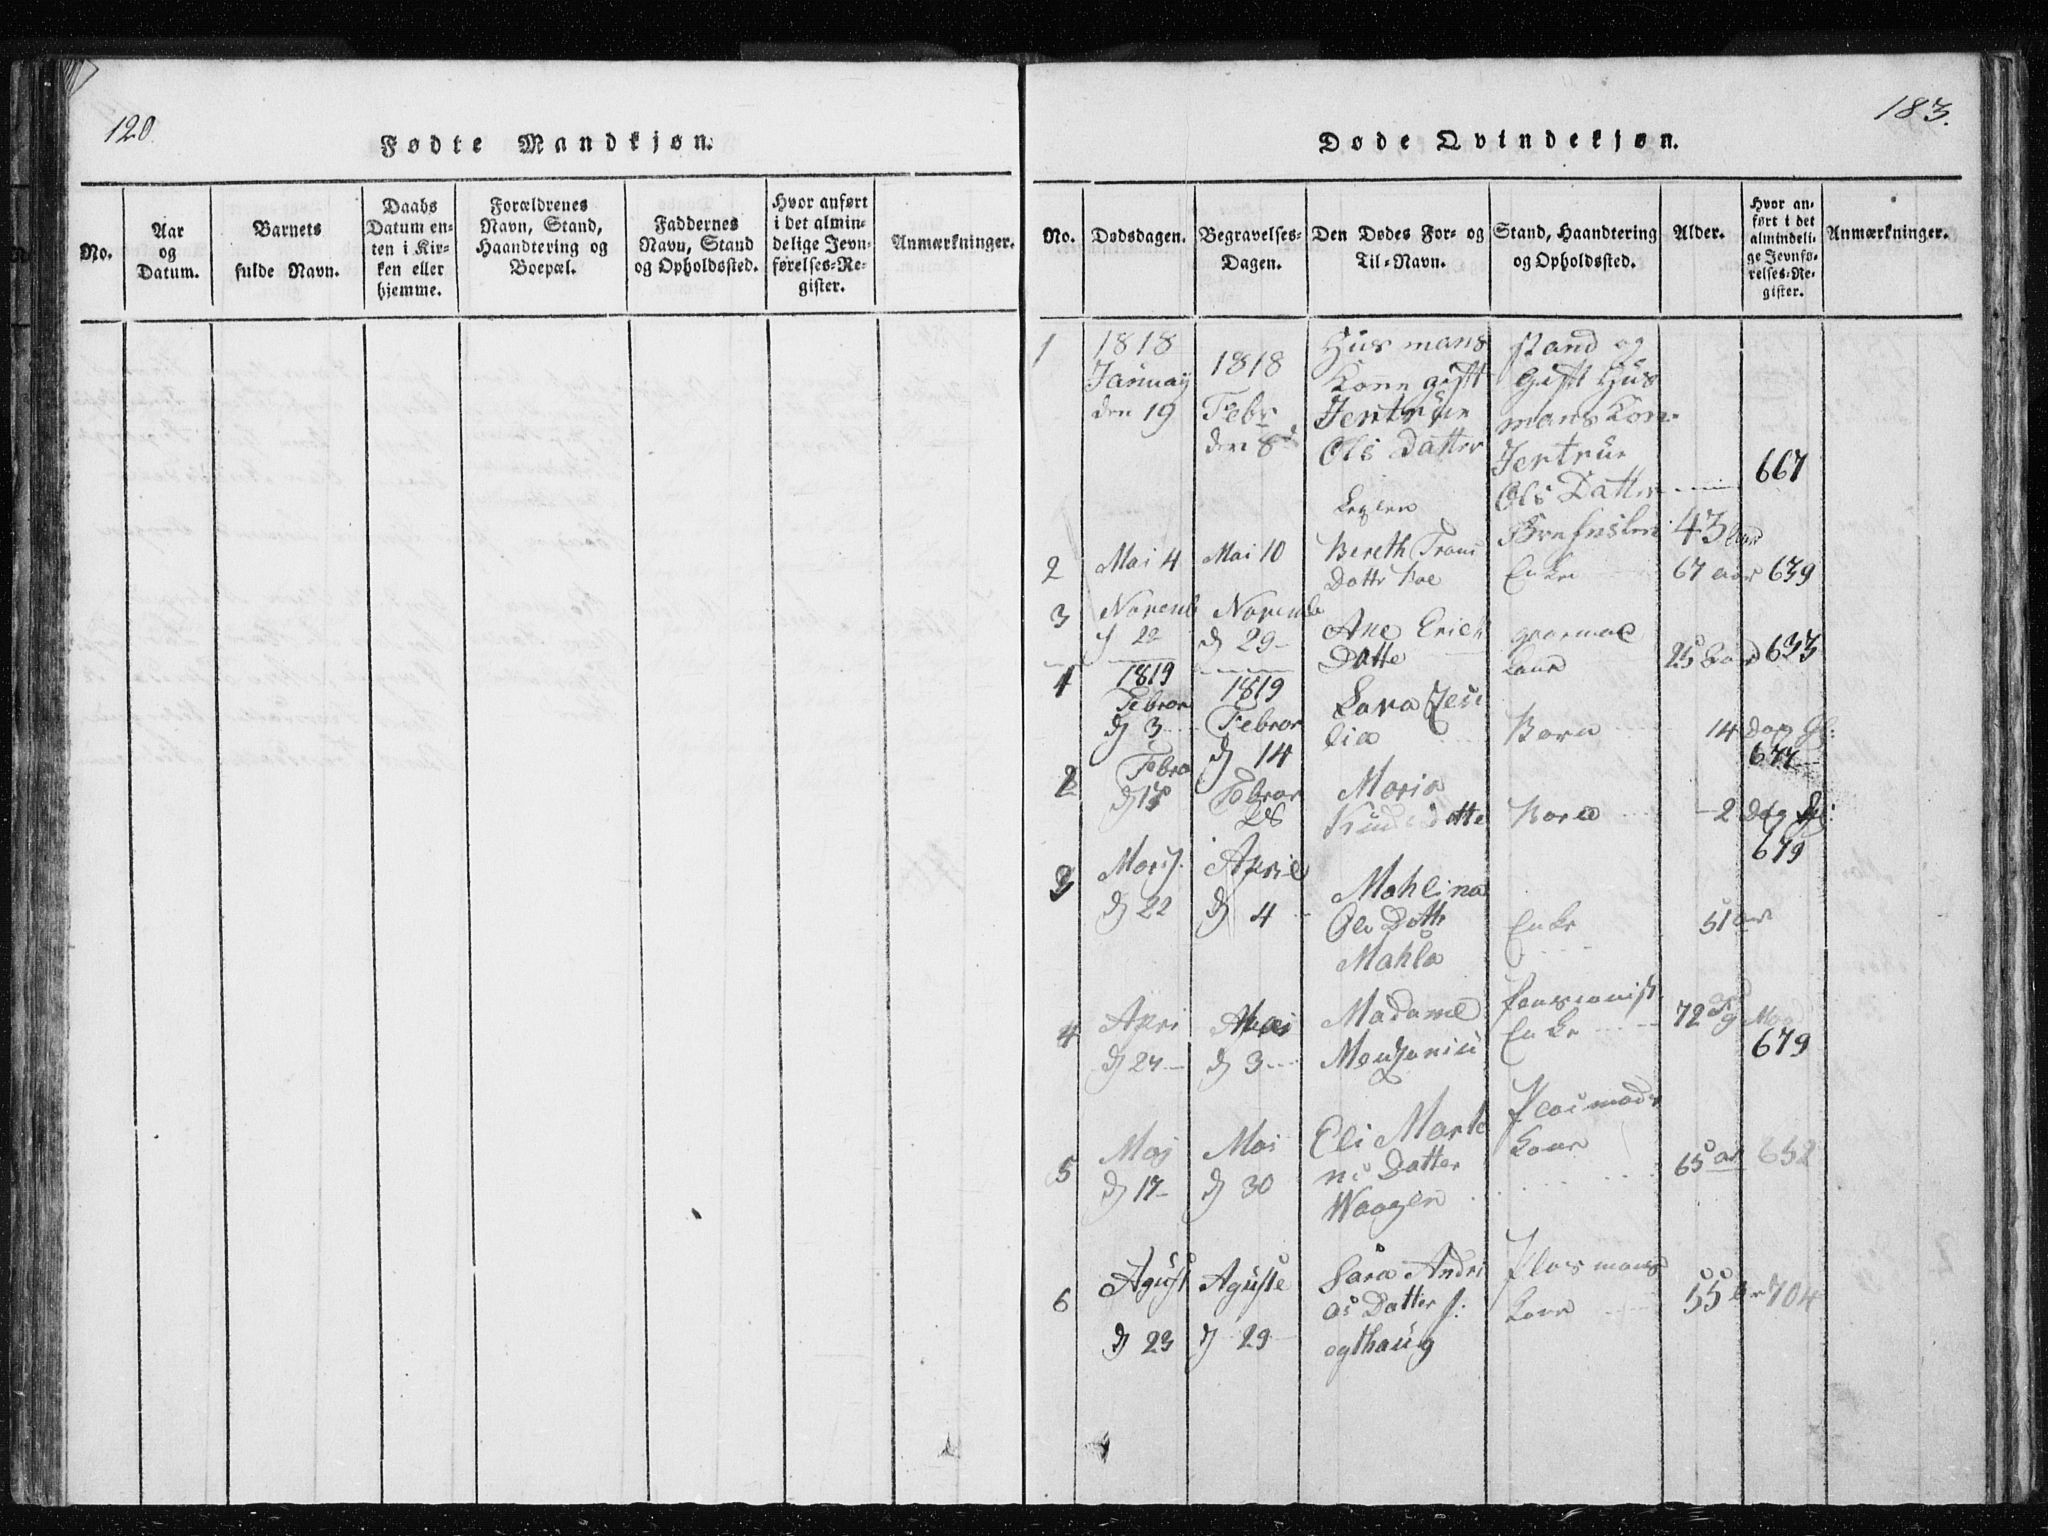 120
Fødte Mandkjøn.
No.
Aar
og
Datum.
Barnets
fulde Navn.
Daabs
Datum en-
ten i Kir-
ken eller
hjemme.
Forældrenes
Navn, Stand,
Haandtering og
Boepæl.
Faddernes
Navn, Stand
og Opholdssted.
Hvor anført
i det almin-
delige Jevn-
førelses-Re-
gister.
Anmærkninger.
183.
Døde Qvindekjøn.
No.
Dødsdagen.
Begravelses-
Dagen.
Den Dødes For- og
Til-Navn.
Stand, Haandtering
og Opholdssted.
Alder.
Hvor an-
ført i det
almindeli-
ge Jevnfø-
relses-Re-
gister.
Anmærkninger.
1
1818
Januay
den 19
1818
Febr
den 8d
Husmans
Kone gift
Jertrue
Ols Datter
stand og
Gift Hus
mans Kon
Jertrue
Ols Datter
43
667
2
Mai 4
Mai 10
Bereth
Dottr
Enke
67 aar
639
3
Novemb
d 22
Novemb
dj 29
Ane Erich
Datte
Kone
25
633
1
1819
Febror
dj 3
1819
Febror
dj 14
Sara
lia
Born
14 Dag
677
2
Febro
dj 17
Febror
28
Maria
Datte
Born
2 Dag
679
3
dj 22
April
dj 4
Mahlina
Ole Dottr
Mahla
Enke
51 aar
4
Apri
dj 27
Mai
dj 3
Madame
Pansionist
Enke
72
9
679
5
Maj
dj 17
Mai
dj 30
Eli Marte
ns Datter
Waagen
Kone
65 aar
652
6
Agust
dj 23
Aguste
dj 29
Sara Andri
as Datter
ogthaug
Plasmans
Kone
55
704